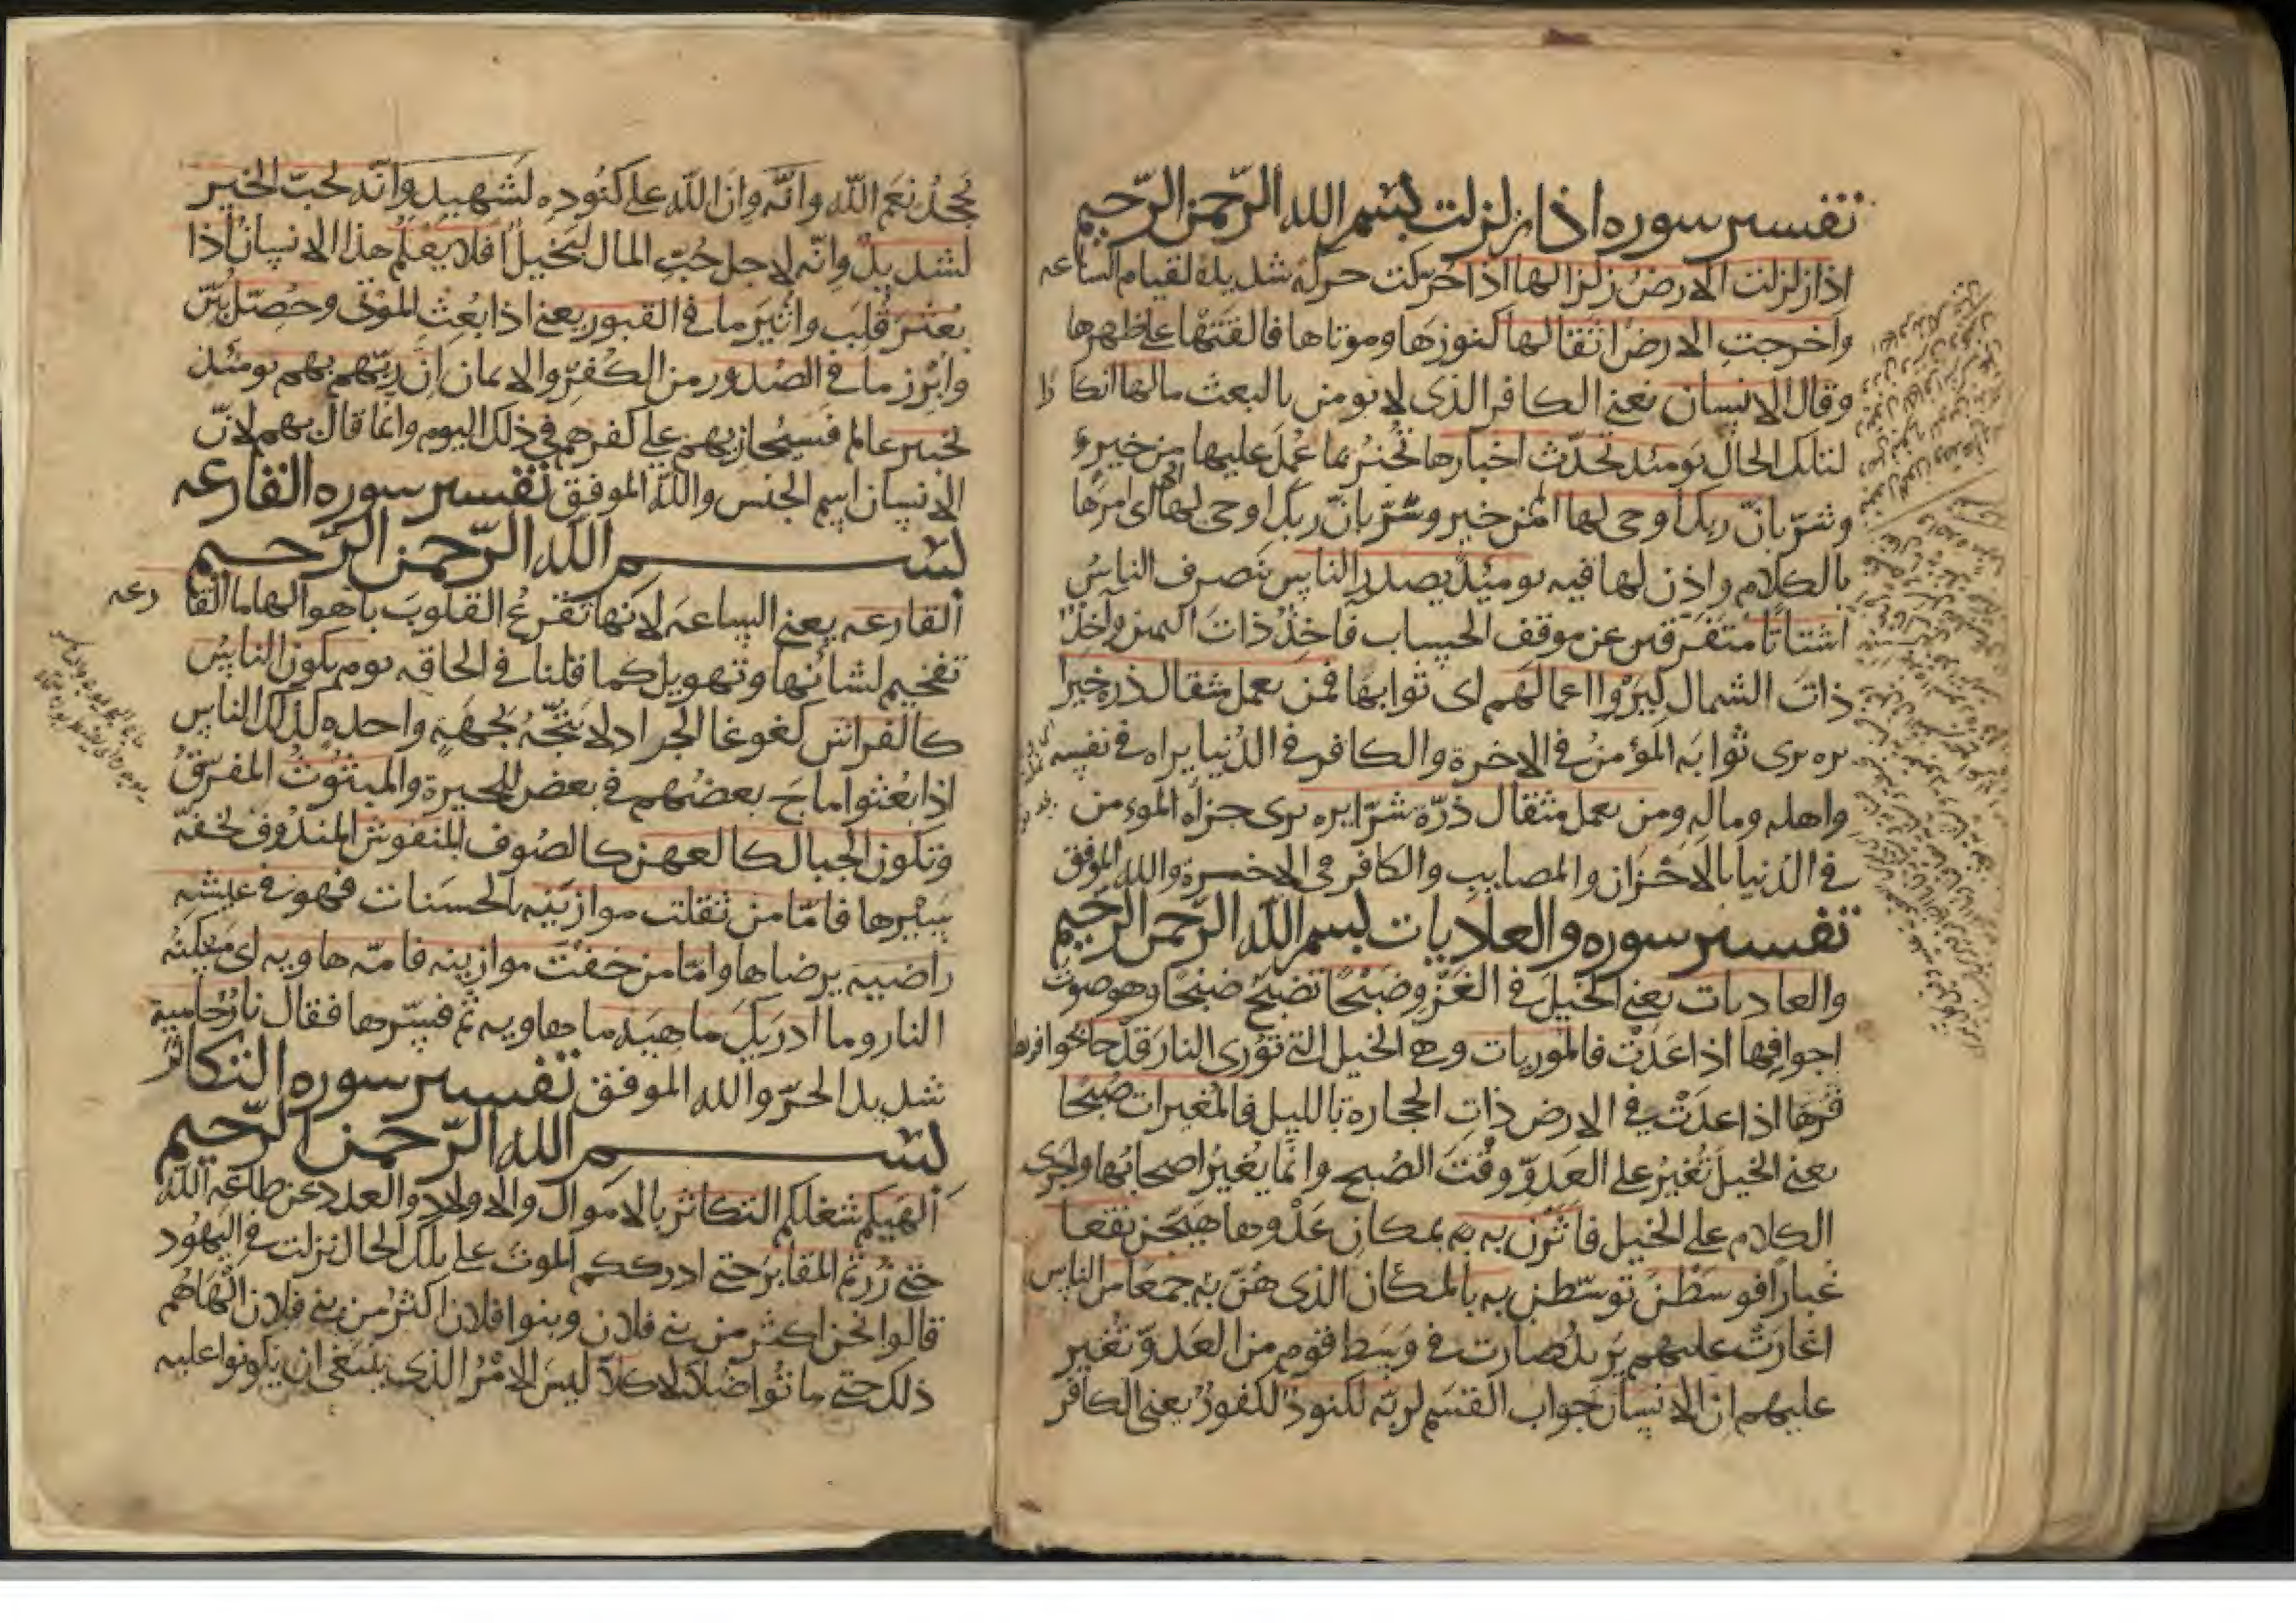 تفسير سوره اذا زلزلت بسم الله الرحمن الرحيم
اذا زلزلت الارض زلزالها اذا حركت حركة شديدة لقيام الساعه
واخرجت الارض اثقالها كنوزها وموتاها فالقتها على ظهرها
وقال الانسان يعنى الكافر الذى لا يومن بالبعث مالها انكارا
لتلك الحال يومئذ تحدث اخبارها تخبر بما عمل عليها من خير و
وشر بان ربك اوحى لها المن خير وشر بان ربك اوحى لها اى امرها
بالكلام واذن لها فيه يومئذ يصدر الناس يتصرف الناس
اشتاتا متفرقين عن موقف الحساب فاخذ ذات اليمين واخذ
ذات الشمال ليروا اعمالهم اى ثوابها فمن يعمل مثقال ذره خيرا
يره يرى ثوابه المؤمن فى الاخرة والكافر فى الدنيا يراه فى نفسه
واهله وماله ومن يعمل مثقال ذرة شرا يره يرى جزاه المومن
فى الدنيا بالاحزان والمصايب والكافر فى الاخرة والله الموفق
تفسير سوره والعاديات بسم الله الرحمن الرحيم
والعاديات يعنى الخيل فى الغزو ضبحا تضبح ضبحا وهو صوت
اجوافها اذا عدت فالموريات وهى الخيل التى تورى النار قدحا بحوافرها
اذا عدت فى الارض ذات الحجارة بالليل فالمغيرات صبحا
يعنى الخيل تغير على العدو وقت الصبح وانما يغير اصحابها واجرى
الكلام على الخيل فاثرن به به بمكان عدوها هيجن نقعا
غبارا فوسطن توسطن به بالمكان الذى هن به جمعا من الناس
اغارت عليهم يريد صارت فى وسط قوم من العدو تغير
عليهم ان الانسان جواب القسم لربه لكنود لكفور يعنى الكافر
يجحد نعم الله وانه وان الله على كنوده لشهيد وانه لحب الخير
لشديد وانه لاجل حب المال لبخيل افلا يعلم هذا الانسان اذا
بعثر قلب واثير ما فى القبور يعنى اذا بعث الموتى وحصل بين
وابرز ما فى الصدور من الكفر والايمان ان ربهم بهم يومئذ
لخبير عالم فسيجازيهم على كفرهم فى ذلك اليوم وانما قال بهم لان
الانسان اسم الجنس والله الموفق تفسير سوره القارعه
بسم الله الرحمن الرحيم
القارعه يعنى الساعه لانها تقرع القلوب باهوالها ما القارعه
تفخيم لشانها وتهويل كما قلنا فى الحاقه يوم يكون الناس
كالفراش كغوغا الجراد لا يتجه لجهة واحده كذلك الناس
اذا بعثوا ماج بعضهم فى بعض للحيرة والمبثوث المفرق
وتكون الجبال كالعهن كالصوف المنفوش المندوف لخفة
سيرها فاما من ثقلت موازينه بالحسنات فهو فى عيشه
راضيه يرضاها واما من خفت موازينه فامه هاويه اى مسكنه
النار وما ادريك ماهيه ما هاويه ثم فسرها فقال نار حامية
شديد الحر والله الموفق تفسير سوره التكاثر
بسم الله الرحمن الرحيم
الهيكم شغلكم التكاثر بالاموال والاولاد والعدد عن طاعة الله
حتى زرتم المقابر حتى ادرككم الموت على تلك الحال نزلت فى اليهود
قالوا نحن اكثر من بنى فلان وبنوا فلان اكثر من بنى فلان الهاهم
ذلك حتى ماتوا ضلالا كلا ليس الامر الذى ينبغى ان يكونوا عليه